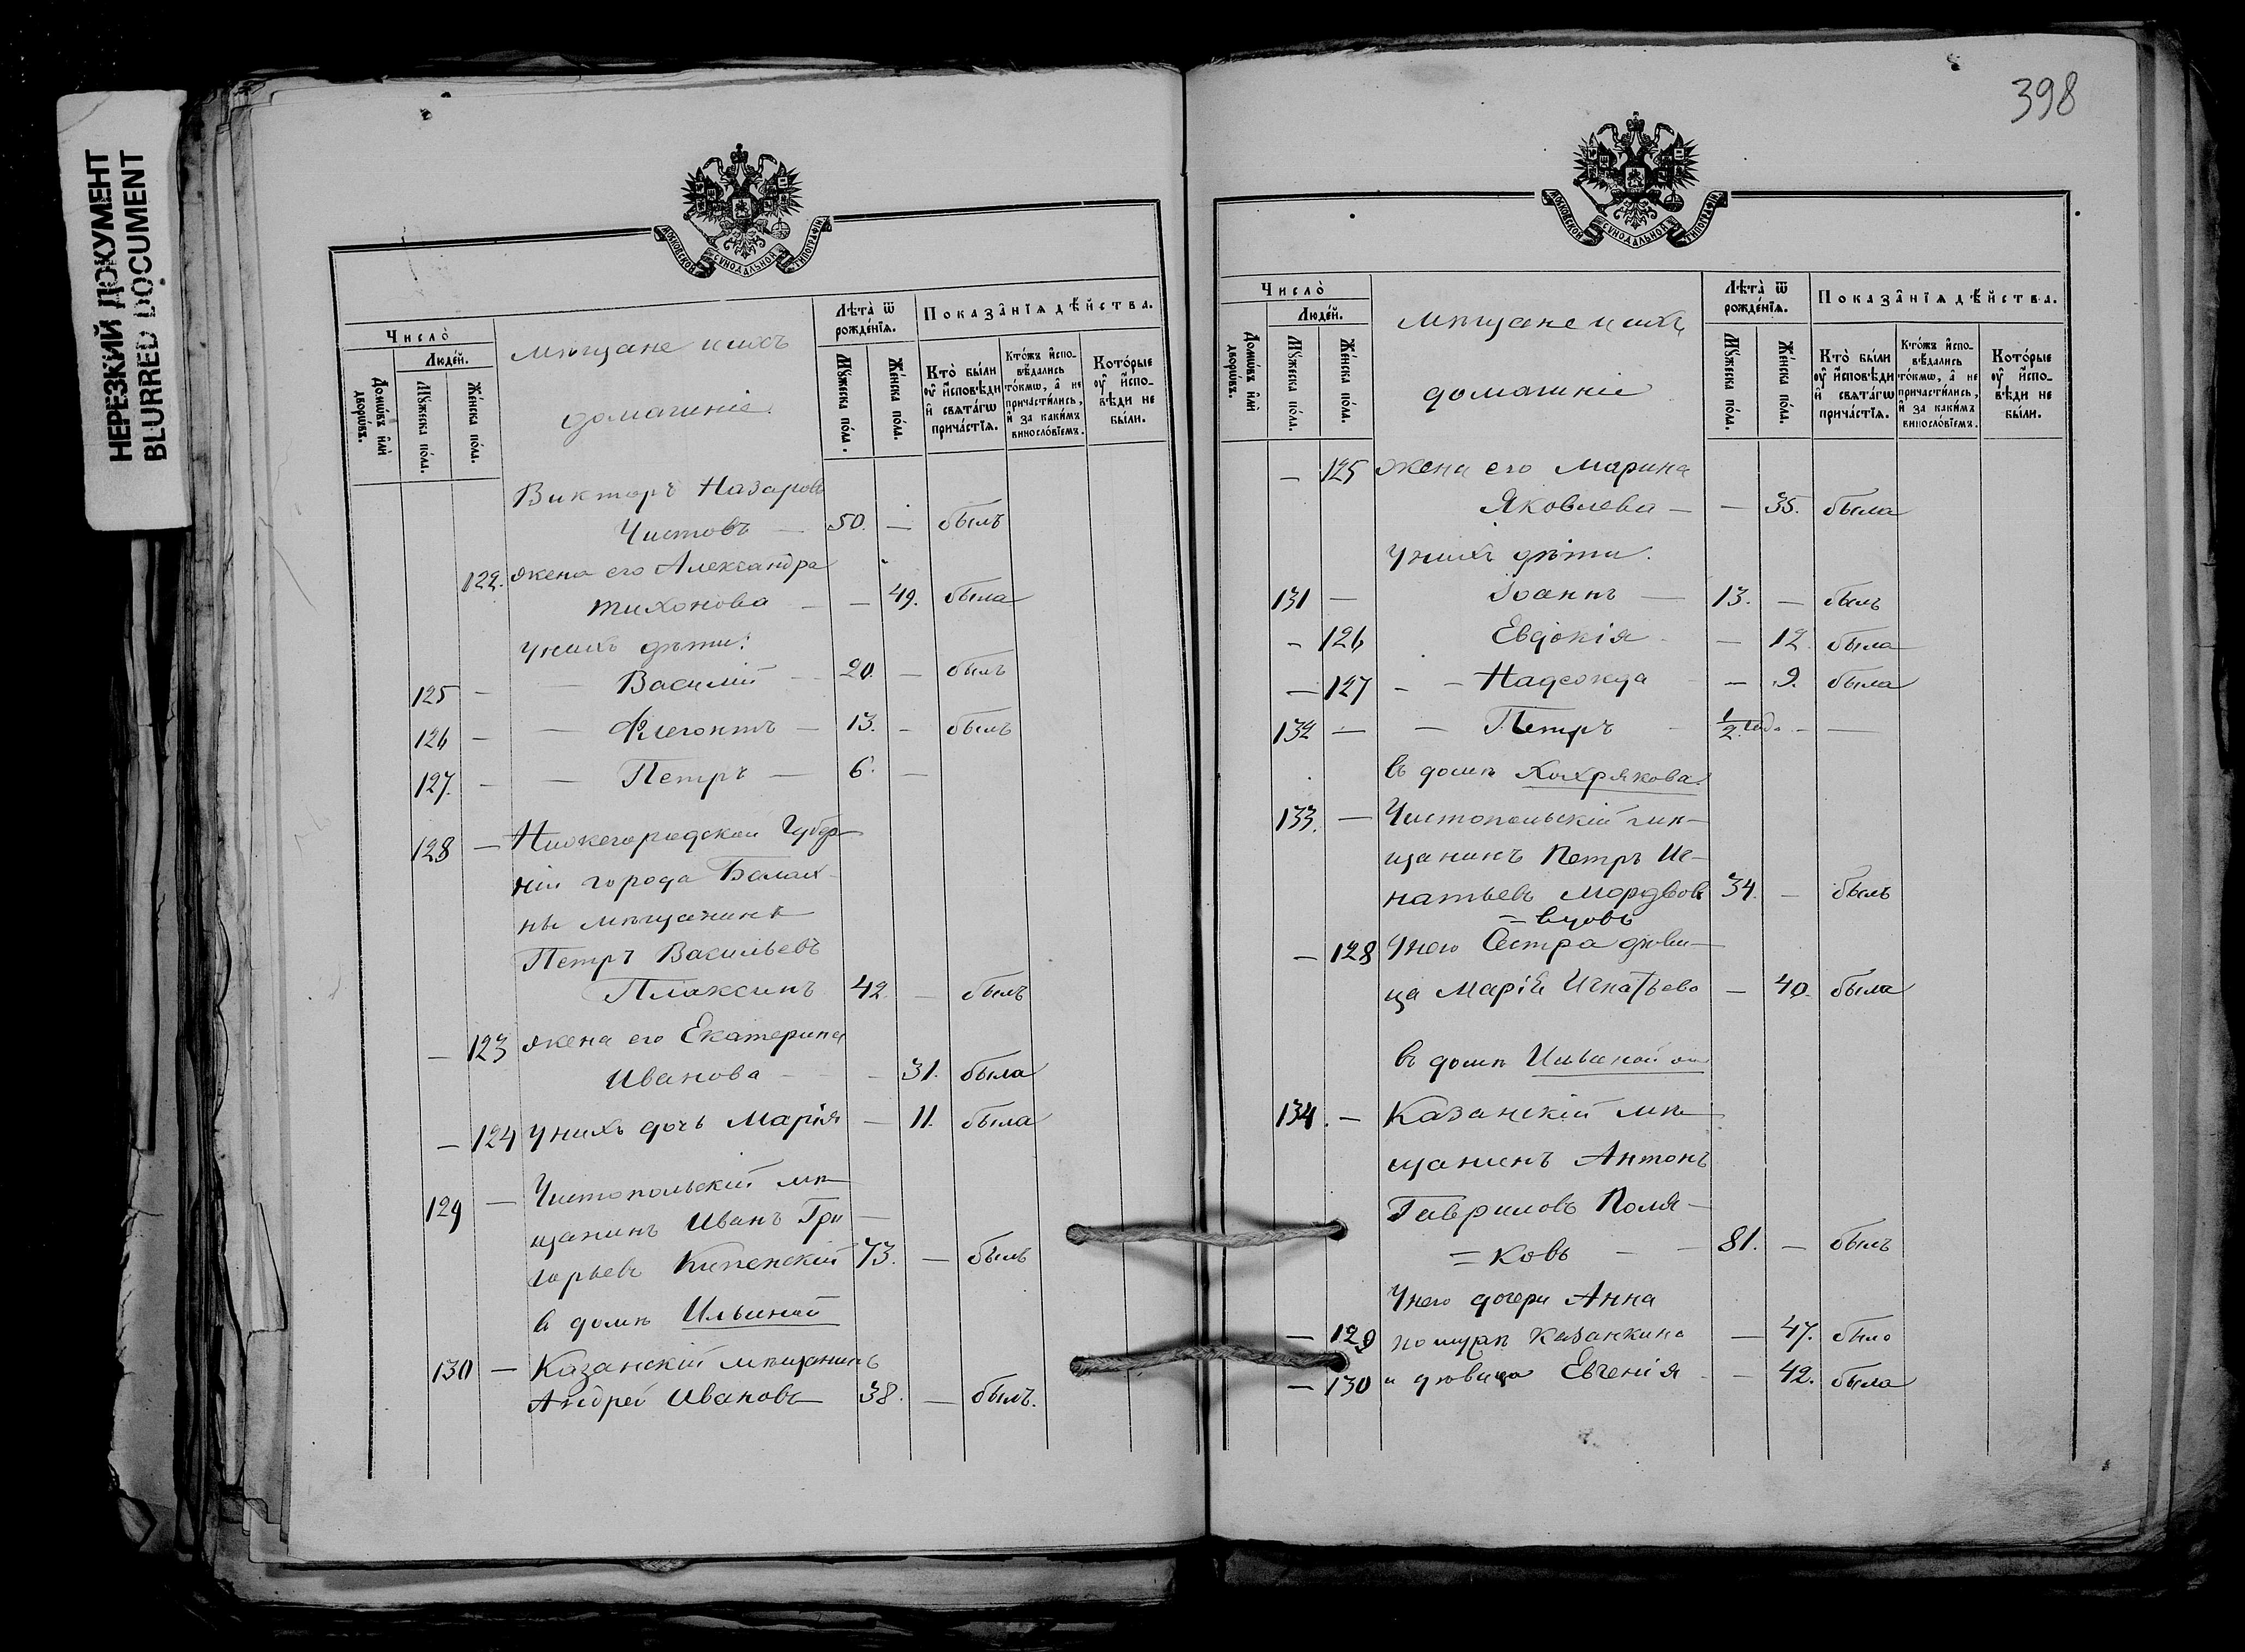 НЕРЕЗКИЙ ДОКУМЕНТ
BLURRED DOCUMENT
МОСКОВСКОЙ СѴНОДАЛЬНОЙ ТИПОГРАФІИ
Число̀
Люде́й.
Домѡ́въ и҆лѝ дворѡ́въ.
Мꙋ́жеска по́ла.
Же́нска по́ла.
мѣщане и ихъ
домашніе.
Лѣта̀ ѿ рожде́нїѧ.
Мꙋ́жеска по́ла.
Же́нска по́ла.
Показа̂нїѧ дѣ́йства.
Кто̀ бы́ли ᲂу҆ и҆́сповѣди и҆ свѧта́гѡ прича́стїѧ.
Кто́жъ и҆спо-вѣ́дались то́кмѡ, а҆ не причасти́лись, и҆ за каки́мъ виносло́вїемъ.
Кото́рые ᲂу҆ и҆́спо-вѣди не бы́ли.
Викторъ Назаровъ
Чистовъ — 50. — былъ
122. жена его Александра
Тихонова — — 49. была
у нихъ дѣти:
125 — — Василій — 20. — былъ
126 — — Флегонтъ — 13. — былъ
127. — — Петръ — 6. —
128 — Нижегородской Губер-
ніи города Балах-
ны мѣщанинъ
Петръ Васильевъ
Плаксинъ 42. — былъ
— 123 жена его Екатерина
Иванова — — 31. была
— 124 у нихъ дочь Марія — 11. была
129 — Чистопольскій мѣ-
щанинъ Иванъ Гри-
горьевъ Кипенскій 73. — былъ
в домѣ Ильиной
130 — Казанскій мѣщанинъ
Андрей Ивановъ 38. — былъ.
398
МОСКОВСКОЙ СѴНОДАЛЬНОЙ ТИПОГРАФІИ
Число̀
Люде́й.
Домѡ́въ и҆лѝ дворѡ́въ.
Мꙋ́жеска по́ла.
Же́нска по́ла.
мѣщане и ихъ
домашніе
Лѣта̀ ѿ рожде́нїѧ.
Мꙋ́жеска по́ла.
Же́нска по́ла.
Показа̂нїѧ дѣ́йства.
Кто̀ бы́ли ᲂу҆ и҆́сповѣди и҆ свѧта́гѡ прича́стїѧ.
Кто́жъ и҆спо-вѣ́дались то́кмѡ, а҆ не причасти́лись, и҆ за каки́мъ виносло́вїемъ.
Кото́рые ᲂу҆ и҆́спо-вѣди не бы́ли.
— 125 жена его Марина
Яковлева — — 35. была
У нихъ дѣти.
131 — Іоаннъ — 13. — былъ
— 126 Евдокія — 12. была
— 127 — — Надежда — 9. была
132 — — Петръ 1/2 год. — —
въ домѣ Хохрякова.
133. — Чистопольскій мѣ-
щанинъ Петръ Иг-
натьевъ Мордвов 34. — былъ
= вцовъ
— 128 У него Сестра дѣви-
ца Марія Игнатьева — 40. была
въ домѣ Ильиной
134. — Казанскій мѣ-
щанинъ Антонъ
Гавриловъ Поля-
= ковъ — — 81. — былъ
У него дочери Анна
— 129 Казанкина — 47. была
— 130 и дѣвица Евгенія — 42. была